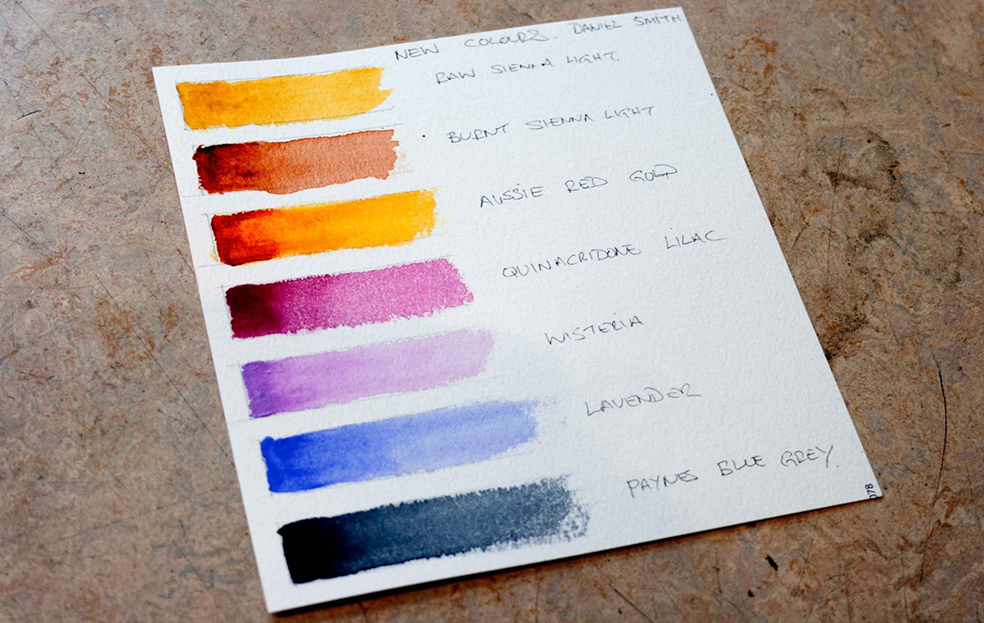 NEW COLOURS. DANIEL SMITH
RAW SIENNA LIGHT.
BURNT SIENNA LIGHT
AUSSIE RED GOLD
QUINACRIDONE LILAC
WISTERIA
LAVENDER
PAYNES BLUE GREY.
078